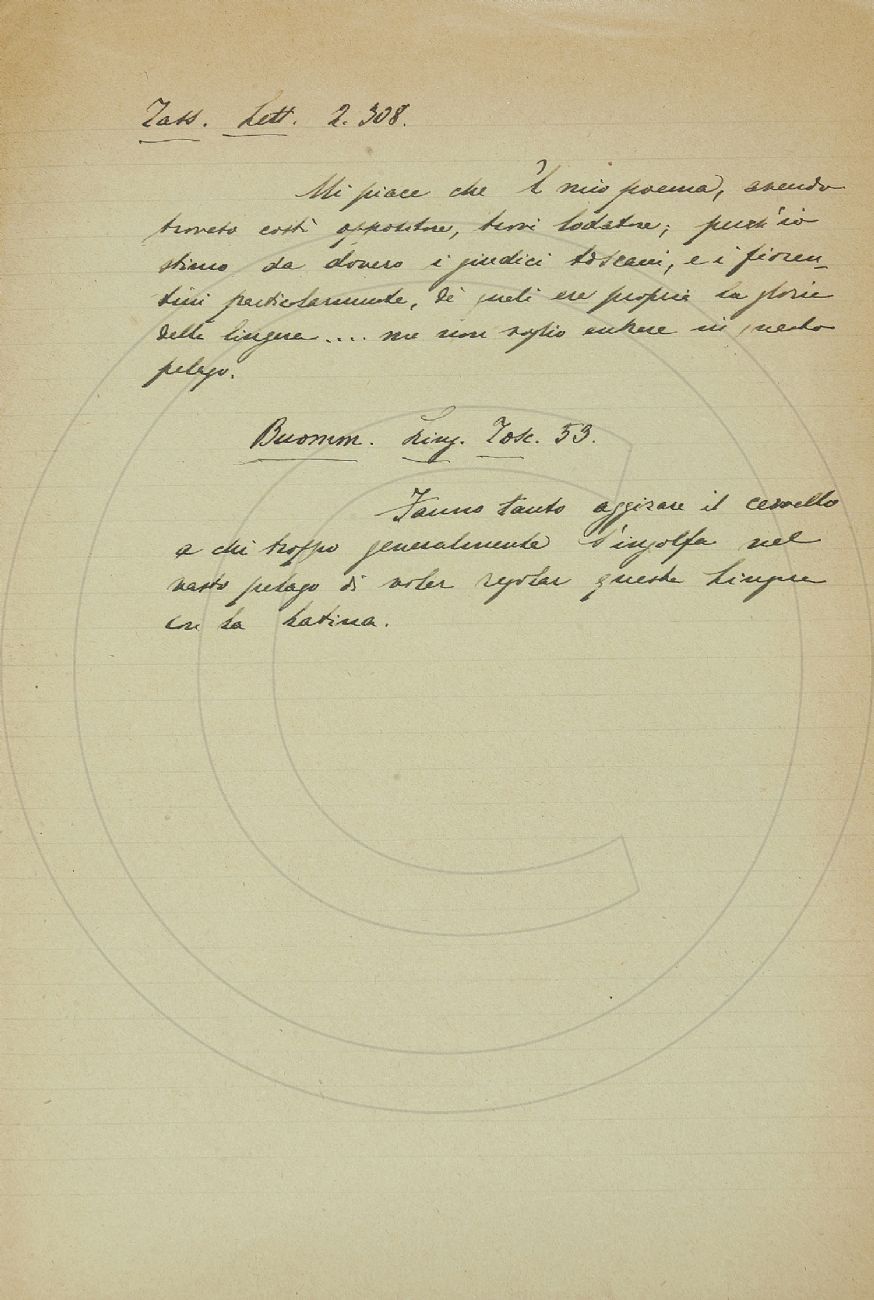 Tass. Lett. 2. 308.
Mi piace che 'l mio poema, avendo
trovato costì oppositore, trovi lodatore; perch'io
stimo da dovero i giudici toscani, e i fioren-
tini particolarmente, de' quali era propria la gloria
della lingua.... ma non voglio entrare in questo
pelago.
Buomm. Ling. Tosc. 53.
Fanno tanto aggirare il cervello
a chi troppo generalmente s'ingolfa nel
vasto pelago di voler regolar questa Lingua
con la Latina.